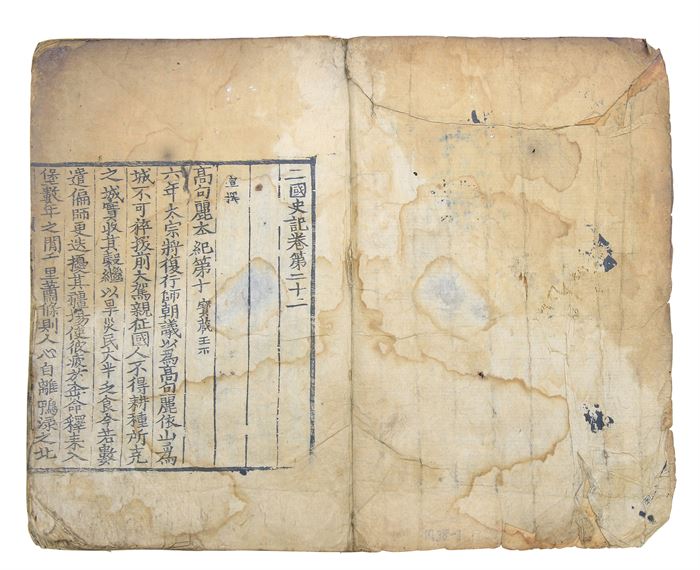 三國史記卷第二十二
宣撰
高句麗本紀第十 寶藏王下
六年太宗將復行師朝議以爲高句麗依山爲
城不可猝拔前大駕親征國人不得耕種所克
之城實收其穀繼以旱災民太半乏食今若數
遣偏師更迭擾其疆埸使彼疲於奔命釋耒入
堡數年之間千里蕭條則人心自離鴨渌之北